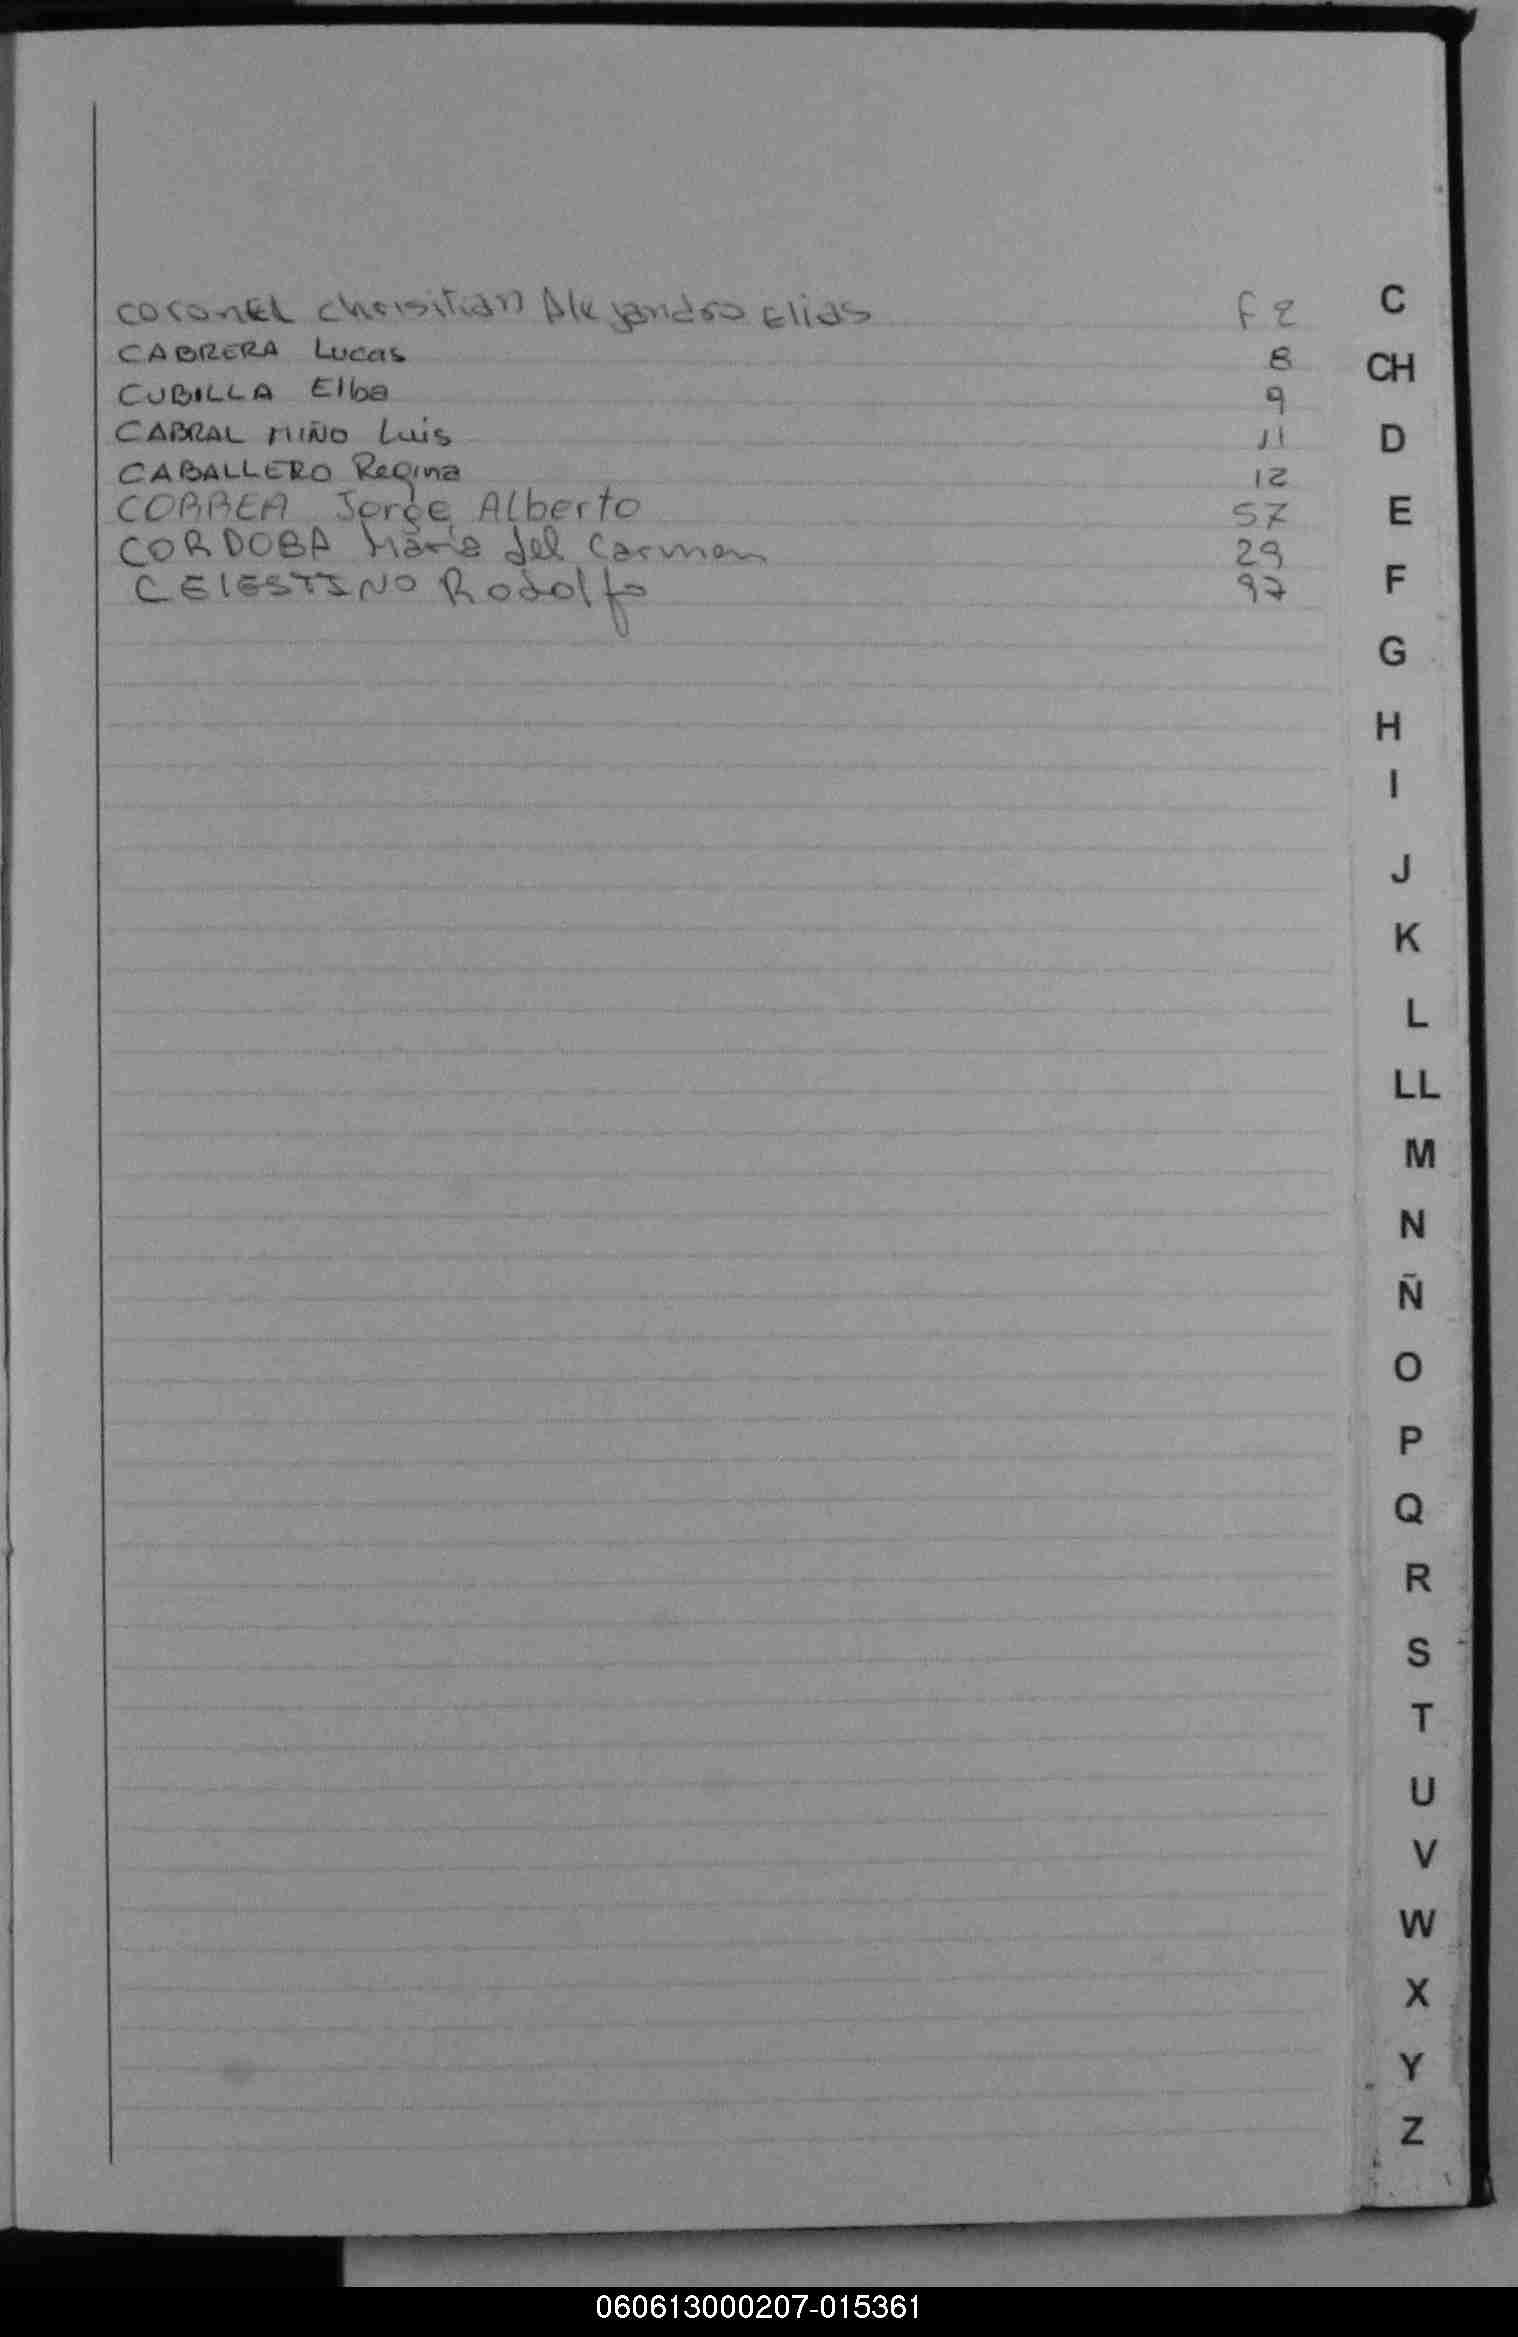 coronel chrisitian Alejandro Elias F 2
CABRERA Lucas 8
CUBILLA Elba 9
CABRAL MIÑO Luis 11
CABALLERO Regina 12
CORREA Jorge Alberto 57
CORDOBA Maria del Carmen 29
CELESTINO Rodolfo 97
C
CH
D
E
F
G
H
I
J
K
L
LL
M
N
Ñ
O
P
Q
R
S
T
U
V
W
X
Y
Z
060613000207-015361